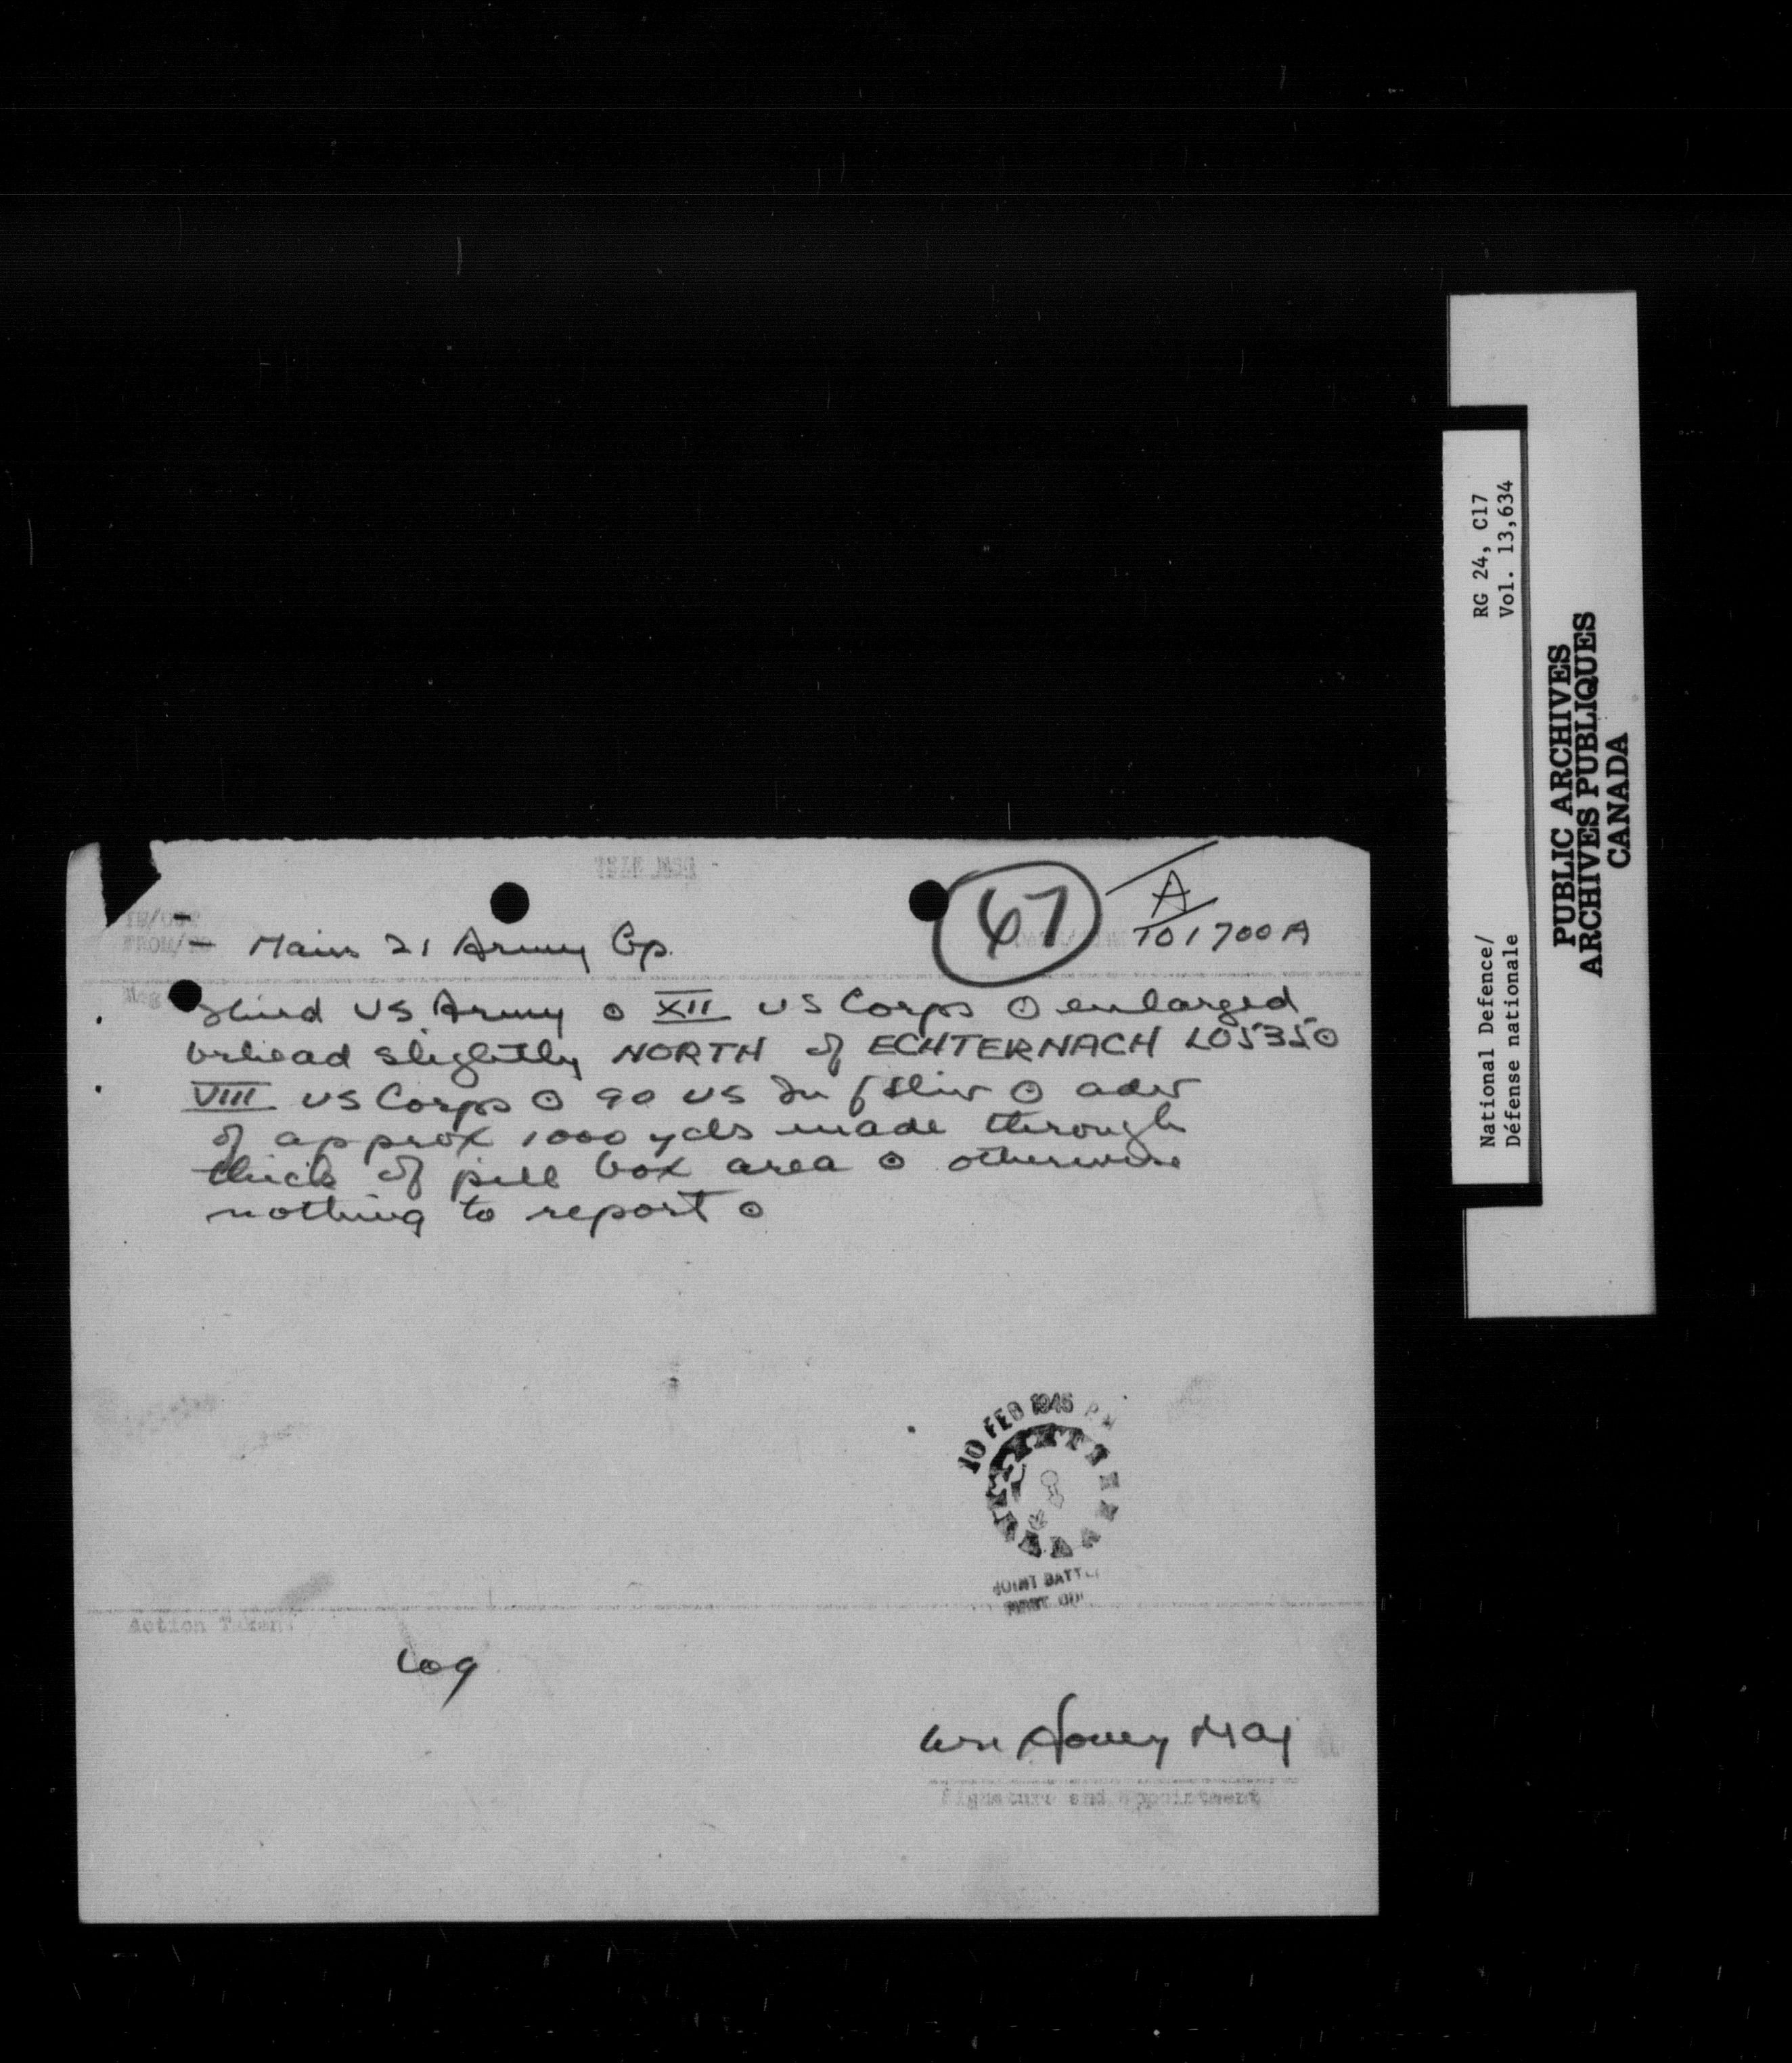 TELE MSG
67
A
101700A
FROM/TO Main 21 Army Gp.
Msg
Third US Army o XII US Corps o enlarged
brhead slightly NORTH of ECHTERNACH L0535 o
VIII US Corps o 90 US Inf Div o adv
of approx 1000 yds made through
thick of pill box area o otherwise
nothing to report o
10 FEB 1945 PM
JOINT BATTLE
Action Taken:
Log
Maj
Signature and appointment
RG 24, C17
Vol. 13,634
National Defence/
Défense nationale
PUBLIC ARCHIVES
ARCHIVES PUBLIQUES
CANADA